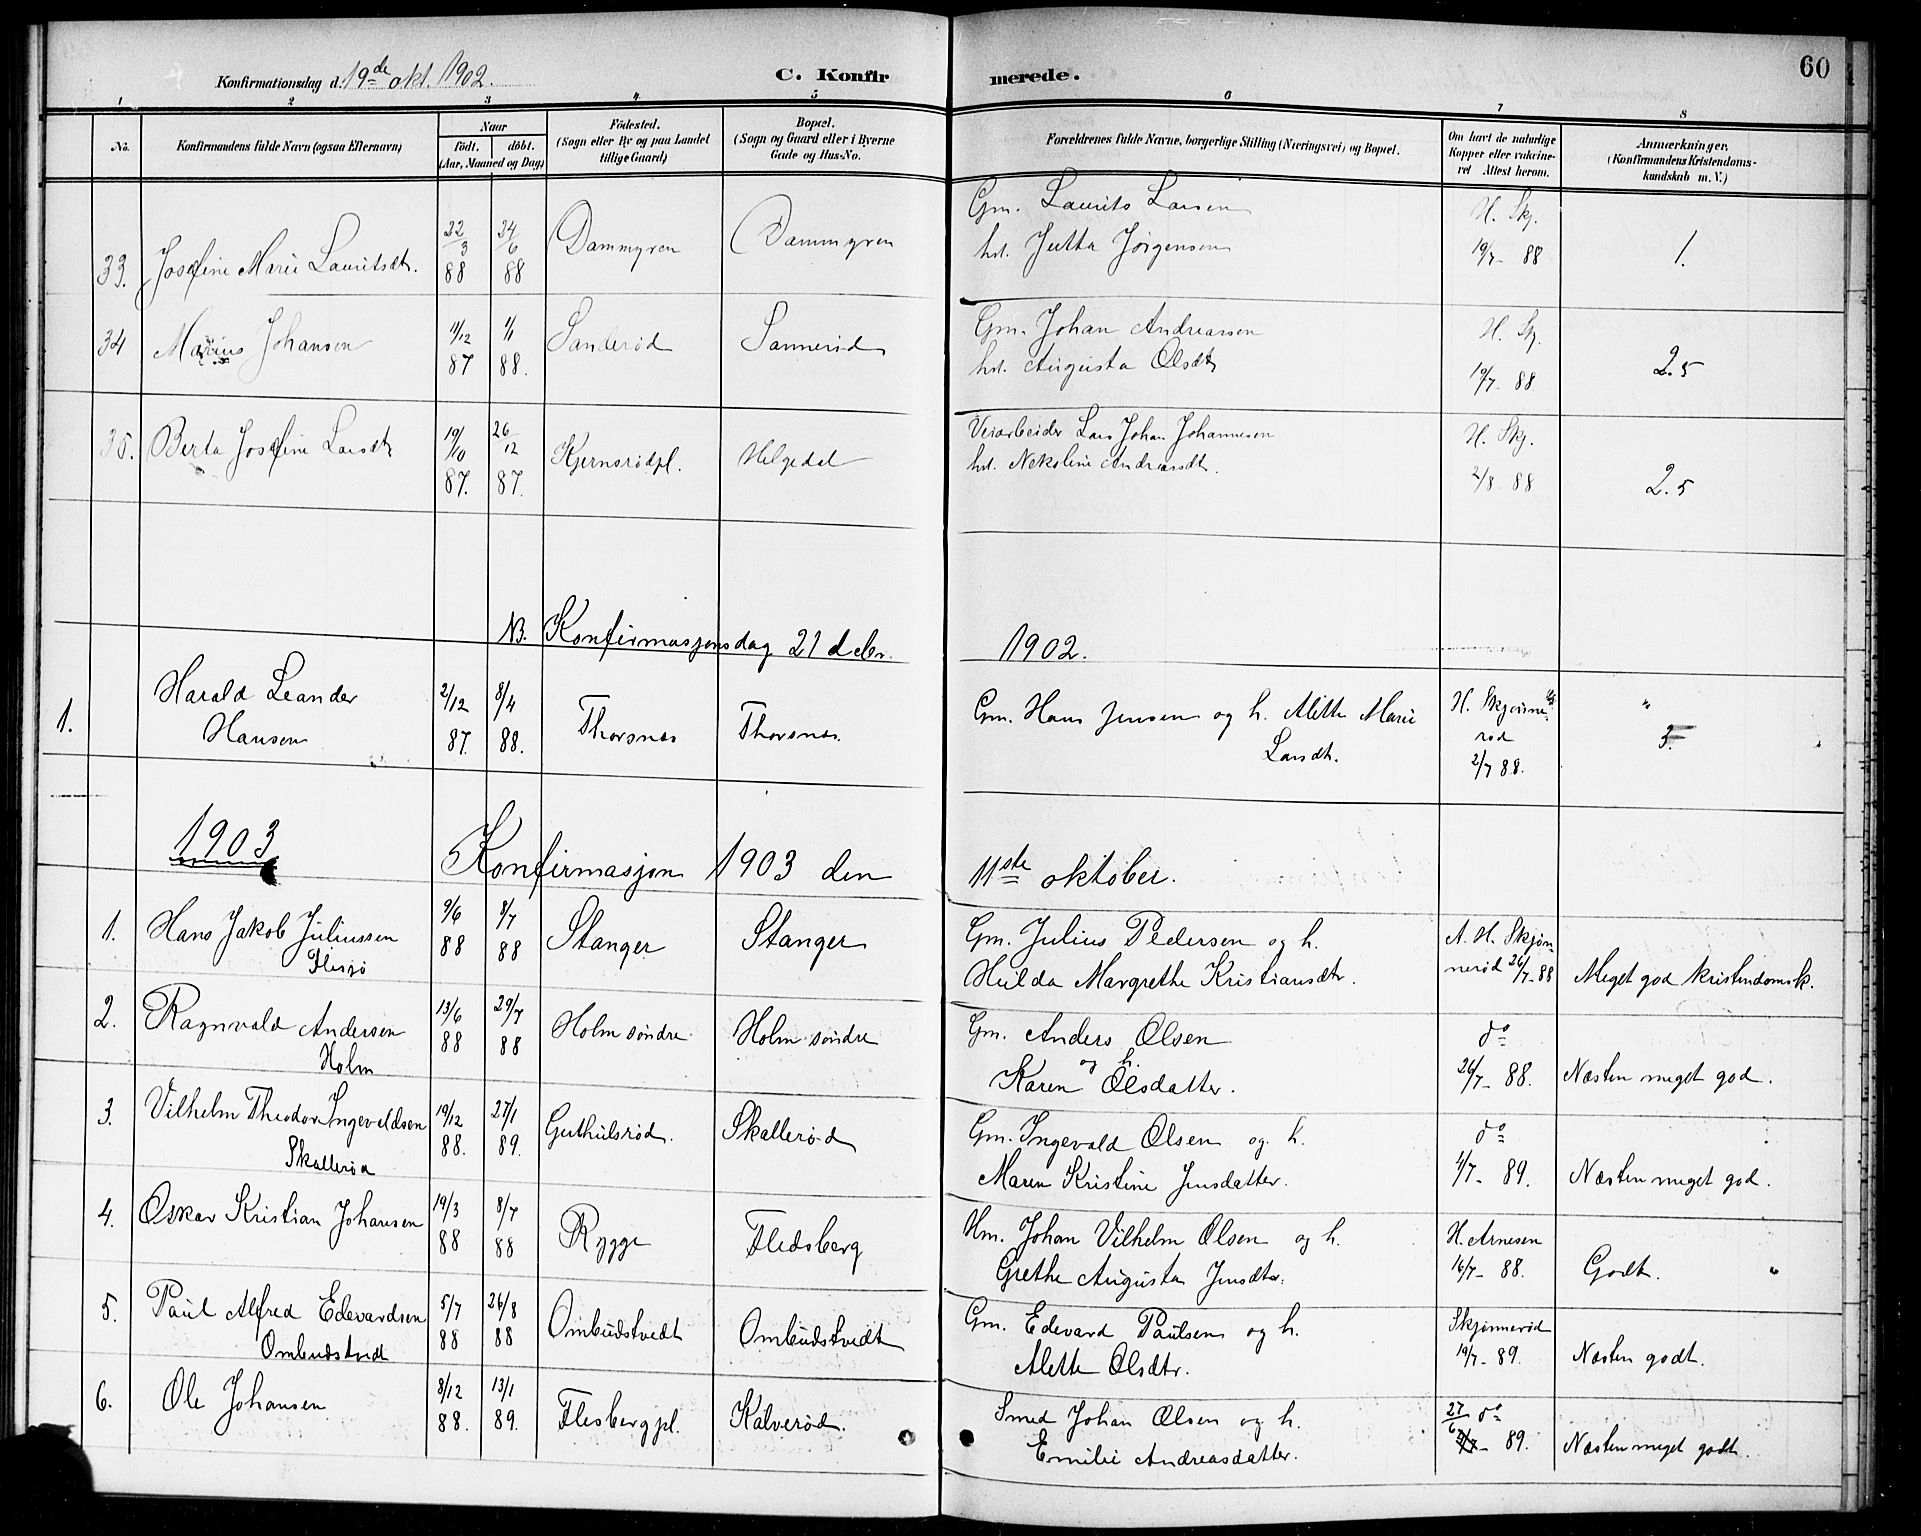 60
Konfirmationsdag d. 19de okt. 1902.
C. Konfirmerede.
1 2 3 4 5 6 7 8
No.
Konfirmandens fulde Navn (ogsaa Efternavn)
Naar
födt. döbt.
(Aar, Maaned og Dag)
Födested.
(Sogn eller By og paa Landet
tillige Gaard)
Bopæl.
(Sogn og Gaard eller i Byerne
Gade og Hus-No.
Forældrenes fulde Navne, borgerlige Stilling (Næringsvei) og Bopæl.
Om havt de naturlige
Kopper eller vakcine-
ret Attest herom.
Anmærkninger.
(Konfirmandens Kristendoms-
kundskab m. V.)
33. Josefine Marie Lauritsdt. 22/3 88 24/6 88 Dammyren Dammyren
Gm. Laurits Larsen
hst. Jutta Jørgensen
H. Skj.
19/7- 88
1.
34 Marius Johansen 11/12 87 1/1 88. Sanderød Sannerød
Gm. Johan Andreassen
hst. Augusta Olsdt
H. Skj.
19/7- 88
2.5
35. Berta Josefine Larsdt 19/10 87. 26/12 87. Kjernsrødpl. Helgedal
Veiarbeider Lars Johan Johannesen
hst. Nekoline Andreasdt.
H. Skj.
2/8- 88
2.5
NB. Konfirmasjonsdag 21 debr. 1902.
1. Harald Leander
Hansen
2/12 87. 8/4 88. Thorsnes Thorsnes.
Gm. Hans Jensen og h. Alette Marie
Larsdt.
H. Skjønne-
rød
2/7 88.
3.
1903
Konfirmasjon 1903 den 11ste oktober.
1. Hans Jakob Juliussen
9/6 88 8/7 88 Stanger Stanger
Gm. Julius Pedersen og h.
Hulda Margrethe Kristiansdtr.
A. H. Skjøn-
nerød 26/7- 88
Meget god kristendomsk.
2. Ragnvald Andersen
Holm
13/6 88 29/7 88 Holm søndre Holm søndre
Gm. Anders Olsen
og h.
Karen Olsdatter.
do
26/7- 88.
Næsten meget god.
3. Vilhelm Theodor Ingevaldsen
Skallerød
19/12 88. 27/1 89. Guthulsrød. Skallerød
Gm. Ingevald Olsen og h.
Maren Kristine Jensdatter.
do
4/7- 89.
Næsten meget god.
4. Oskar Kristian Johansen 19/3 88 8/7 88 Rygge Flesberg
Hm. Johan Vilhelm Olsen og h.
Grethe Augusta Jensdtr.
H. Arnesen
16/7- 88.
Godt.
5. Paul Alfred Edevardsen
Ombudstvedt
5/7 88 26/8 88 Ombudstvedt Ombudstvedt
Gm. Edevard Paulsen og h.
Alette Olsdtr.
Skjønnerød
19/7- 89.
Næsten godt.
6. Ole Johansen 8/12 88. 13/1 89. Flesberg pl. Kalverød.
Smed Johan Olsen og h.
Emilie Andreasdatter.
27/6 do
89.
Næsten meget godt.